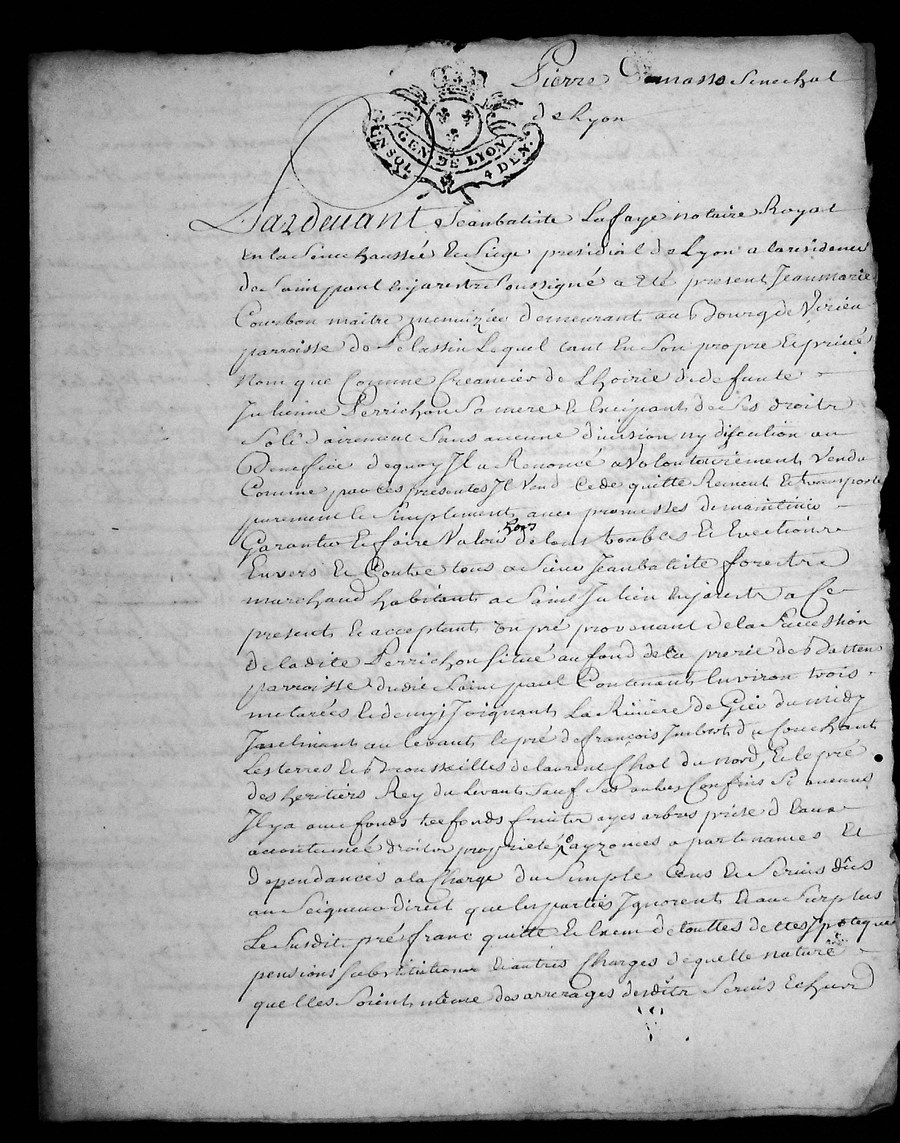 Pierre masso Senechal
de Lyon
GEN. DE LYON
UN SOL 4 DEN.
Pardevant Jeanbatiste Lafaye notaire Royal
En la Senechaussée Et Siege presidial de Lyon a la residence
de Saint paul Enjarestre Soussigné a Eté present Jean marie
Courbon maitre menuizier demeurant au Bourg de Virieu
parroisse de Pelassin Lequel tant En Son propre Et privé
Nom que Comme Creancier de Lhoirie de defunte
Julienne Perrichon Sa mere Et Encipant de Ses droits
Solidairement Sans aucune division ny discution au
Benefice dequoy Il a Renoncé a Volontairement Vendu
Comme par ces presentes Il Vend Cede quitte Remet Et transporte
purement Et Simplement avec promesses de maintenir
Garantir Et faire Valoir de tous troubles Et Evictions
hors
Envers Et Contre tous a Sieur Jeanbatiste forestre
marchand habitant a Saint Julien Enjarestre a Ce
present Et acceptant Un pré provenant de la Succession
de ladite Perrichon Situé au fond de la prerie de Batten
parroisse dudit Saint paul Contenant Environ trois
metarées Et demy Joignant La Riviere de Giés du midy
Jnclinant au levant le pré de françois Jmbert du Couchant
Les terres Et Brousseilles de laurent Chol du Nord, Et le pré
des heritiers Rey du Levant Sauf Ses autres Confins Si aucuns
Il y a avec fonds trefonds fruits ayes arbres prise d Eaux
accoutumée droits proprietés ayzances apartenances Et
Dependances a la Charge du Simple Cens Et Servis dûs
au Seigneur direct que les parties Jgnorent Et au Surplus
Le Susdit pré franc quitte Et Exem de touttes dettes Jpoteques
pensions Substitutions Et autres Charges de quelle nature
quelles Soient même des arrerages desdits Servis Echus